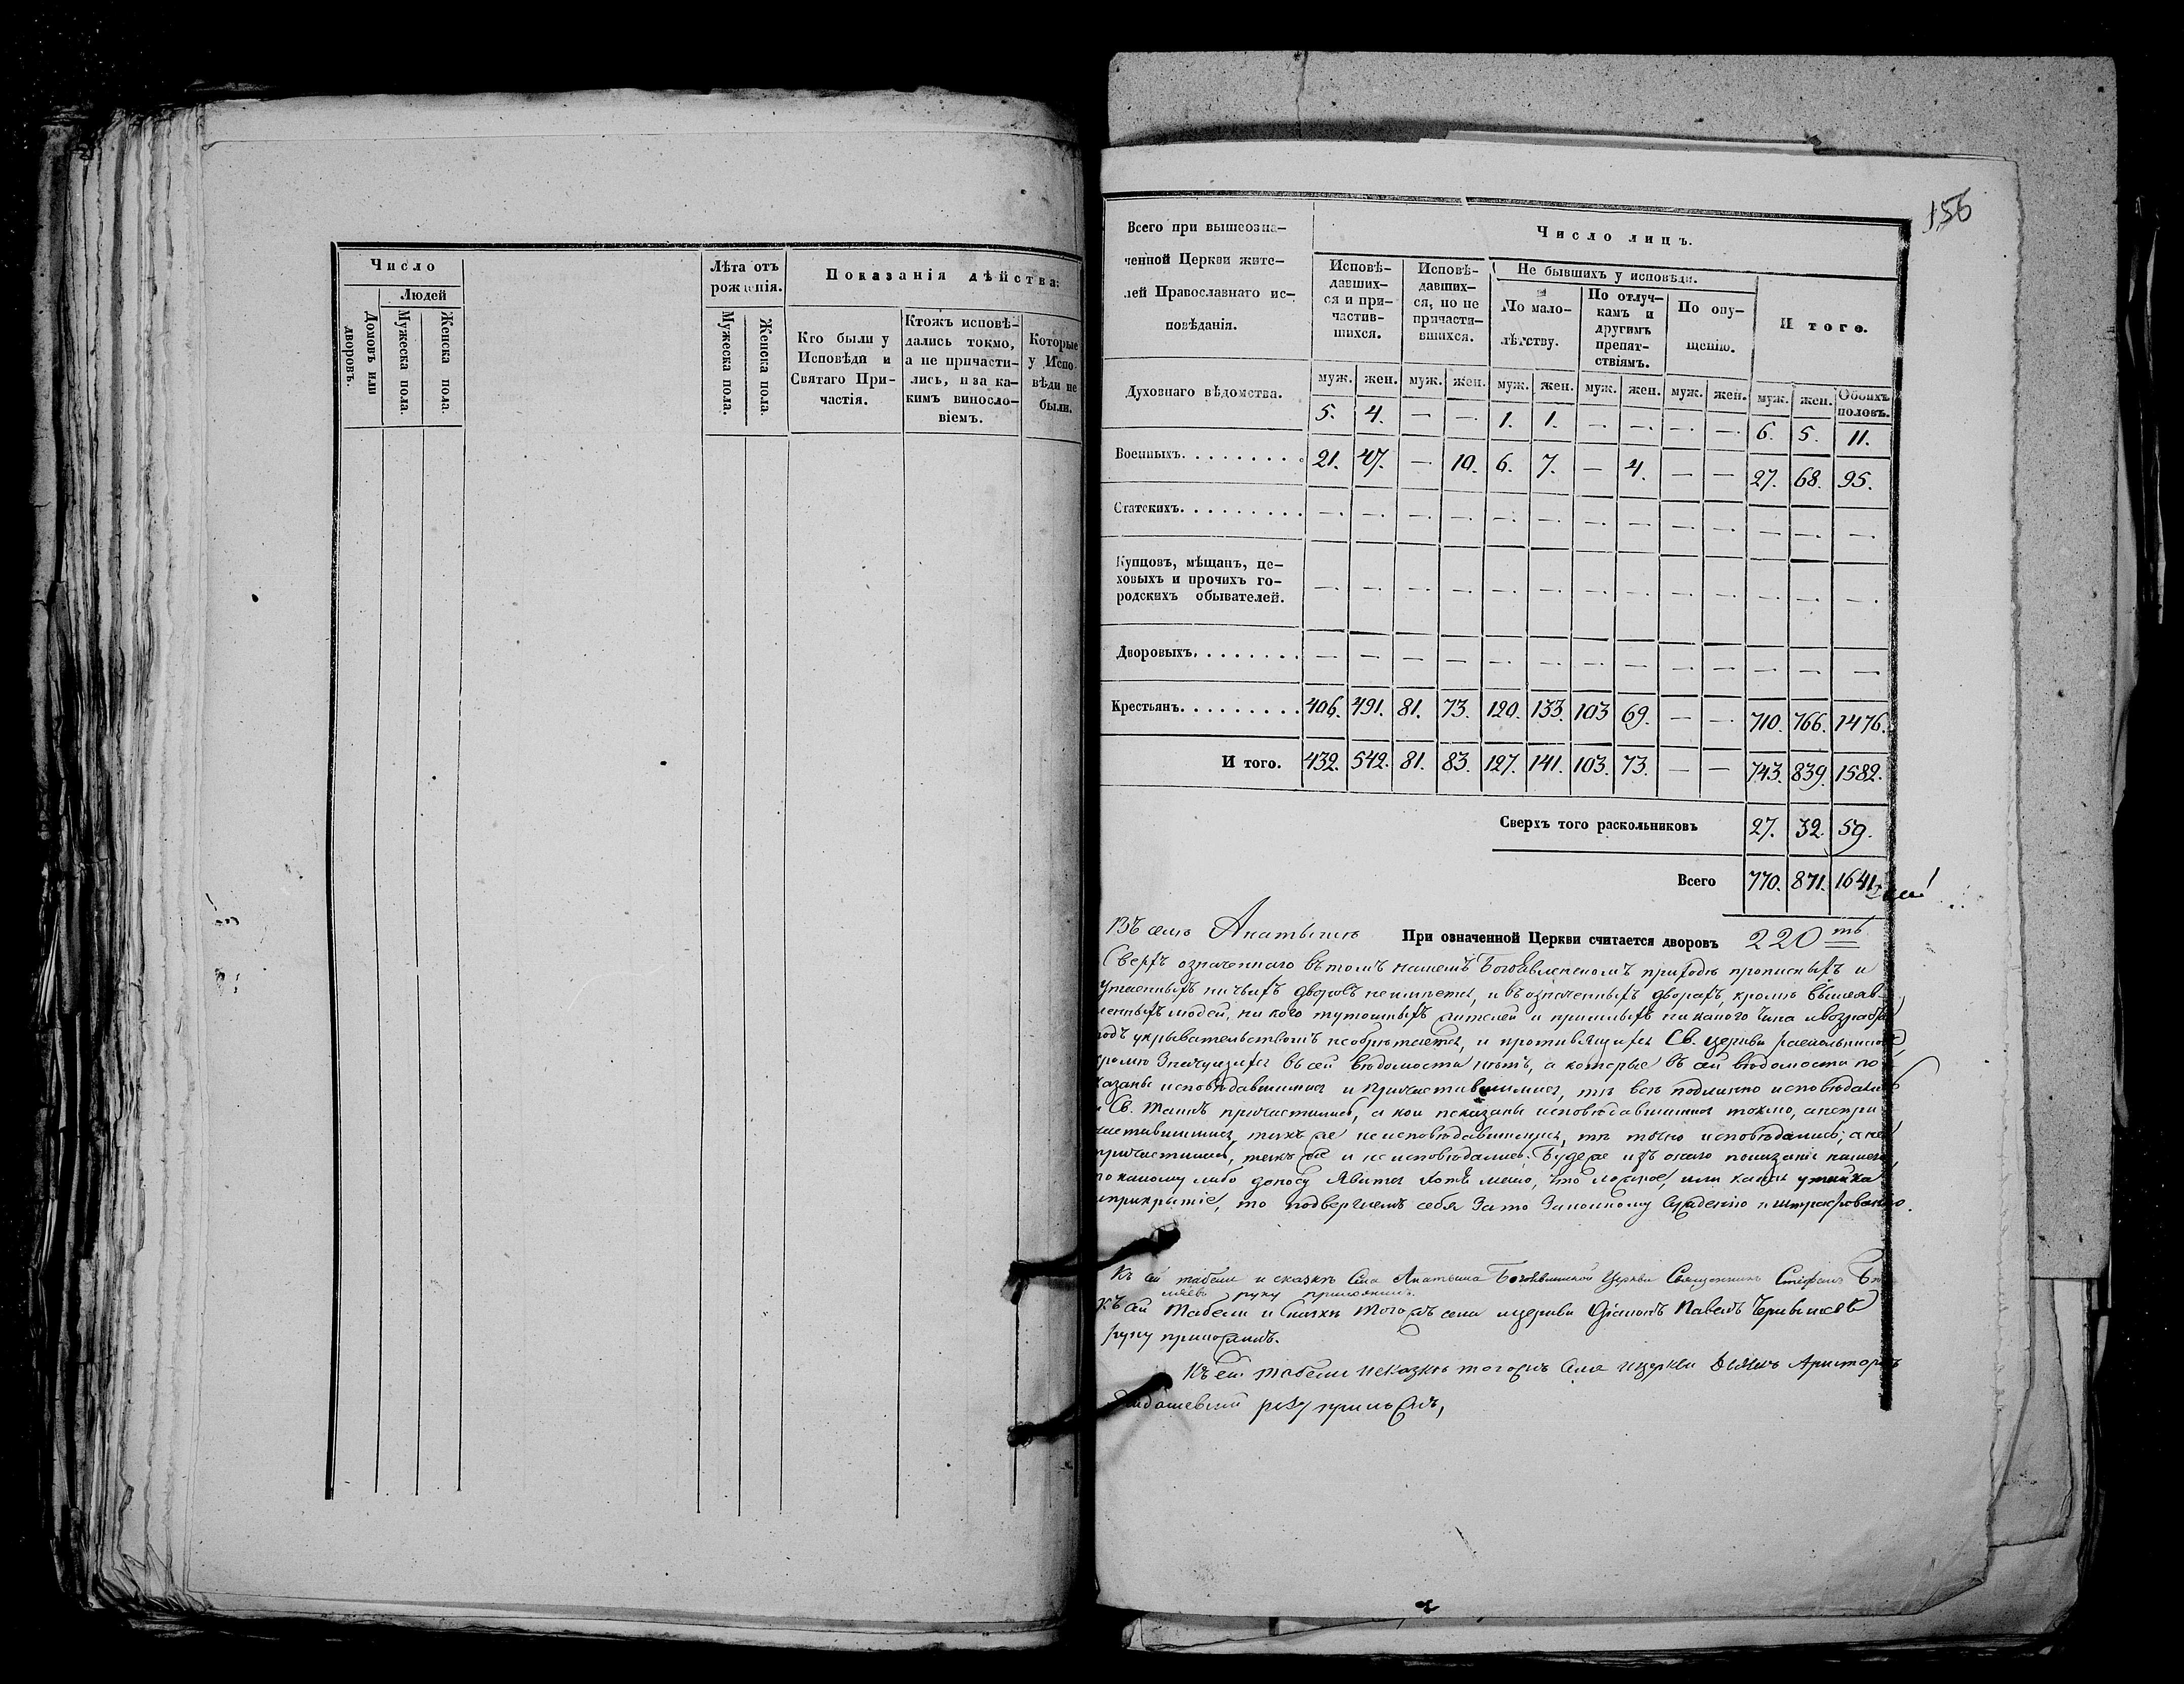 Число
Людей
Домовъ или дворовъ.
Мужеска пола.
Женска пола.
Лѣта отъ рожденія.
Мужеска пола.
Женска пола.
Показанія дѣйства:
Кто были у
Исповѣди и
Святаго При-
частія.
Ктожъ исповѣ-
дались токмо,
а не причасти-
лись, и за ка-
кимъ виносло-
віемъ.
Которые
у Испо-
вѣди не
были.
156
Всего при вышеозна-
ченной Церкви жите-
лей Православнаго ис-
повѣданія.
Число лицъ.
Исповѣ-
давших-
ся и при-
частив-
шихся.
Исповѣ-
давших-
ся, но не
причасти-
вшихся.
Не бывшихъ у исповѣди.
По мало-
лѣтству.
По отлуч-
камъ и
другимъ
препят-
ствіямъ.
По опу-
щенію.
И того.
муж. жен. муж. жен. муж. жен. муж. жен. муж. жен. муж. жен. Обоихъ половъ.
Духовнаго вѣдомства. 5. 4. — — 1. 1. — — — — 6. 5. 11.
Военныхъ. 21. 47. — 10. 6. 7. — 4. — — 27. 68. 95.
Статскихъ. — — — — — — — — — — — — —
Купцовъ, мѣщанъ, це-
ховыхъ и прочихъ го-
родскихъ обывателей. — — — — — — — — — — — — —
Дворовыхъ. — — — — — — — — — — — — —
Крестьянъ. 406. 491. 81. 73. 120. 133. 103 69. — — 710. 766. 1476.
И того. 432. 542. 81. 83. 127. 141. 103. 73. — — 743. 839. 1582.
Сверхъ того раскольниковъ 27. 32. 59.
Всего 770. 871. 1641.
Въ селѣ При означенной Церкви считается дворовъ 220 ть
Сверхъ означеннаго въ томъ нашемъ Богоявленскомъ приходѣ прописныхъ и
утаенныхъ ничьихъ дворовъ не имѣется, и въ означенныхъ дворахъ, кромѣ вышеяв-
ленныхъ людей, ни кого тутошныхъ жителей и пришлыхъ ни какого чина и возраста
подъ укрывательствомъ не обрѣтается, и противящихся Св. церкви раскольниковъ,
кромѣ значущихся въ сей вѣдомости нѣтъ, а которые въ сей вѣдомости по-
казаны исповѣдавшимися и причастившимися, тѣ всѣ подлинно исповѣдались
и Св. Таинъ причастились, а кои показаны исповѣдавшимися токмо, а не при
частившимися, также и не исповѣдавшимися, тѣ точно исповѣдались, а не
причастились, также и не исповѣдались. Буде же изъ онаго показанія нашего
по какому либо доносу явится хотя мало, что ложное, или какая утайка
и прикрытіе, то подвергаемъ себя за то законному сужденію и штрафованію.
Къ сей табели и сказкѣ села Богоявленской Церкви Священникъ Стефанъ
руку приложилъ.
Къ сей табели и сказкѣ тогожъ села и церкви Діаконъ Павелъ
руку приложилъ.
Къ сей табели и сказкѣ тогожъ села и церкви Дьячекъ
руку приложилъ,